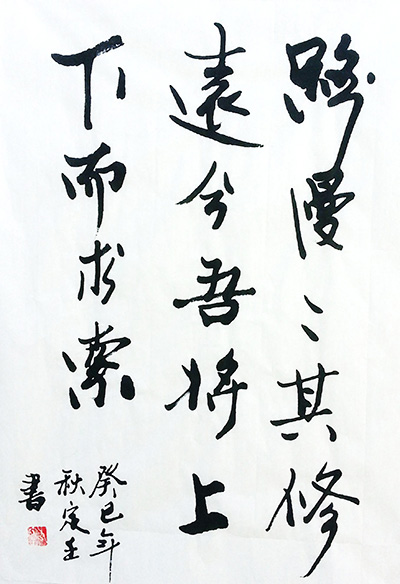 路漫〻其修
遠兮吾將上
下而求索
癸巳年
秋定玉
書